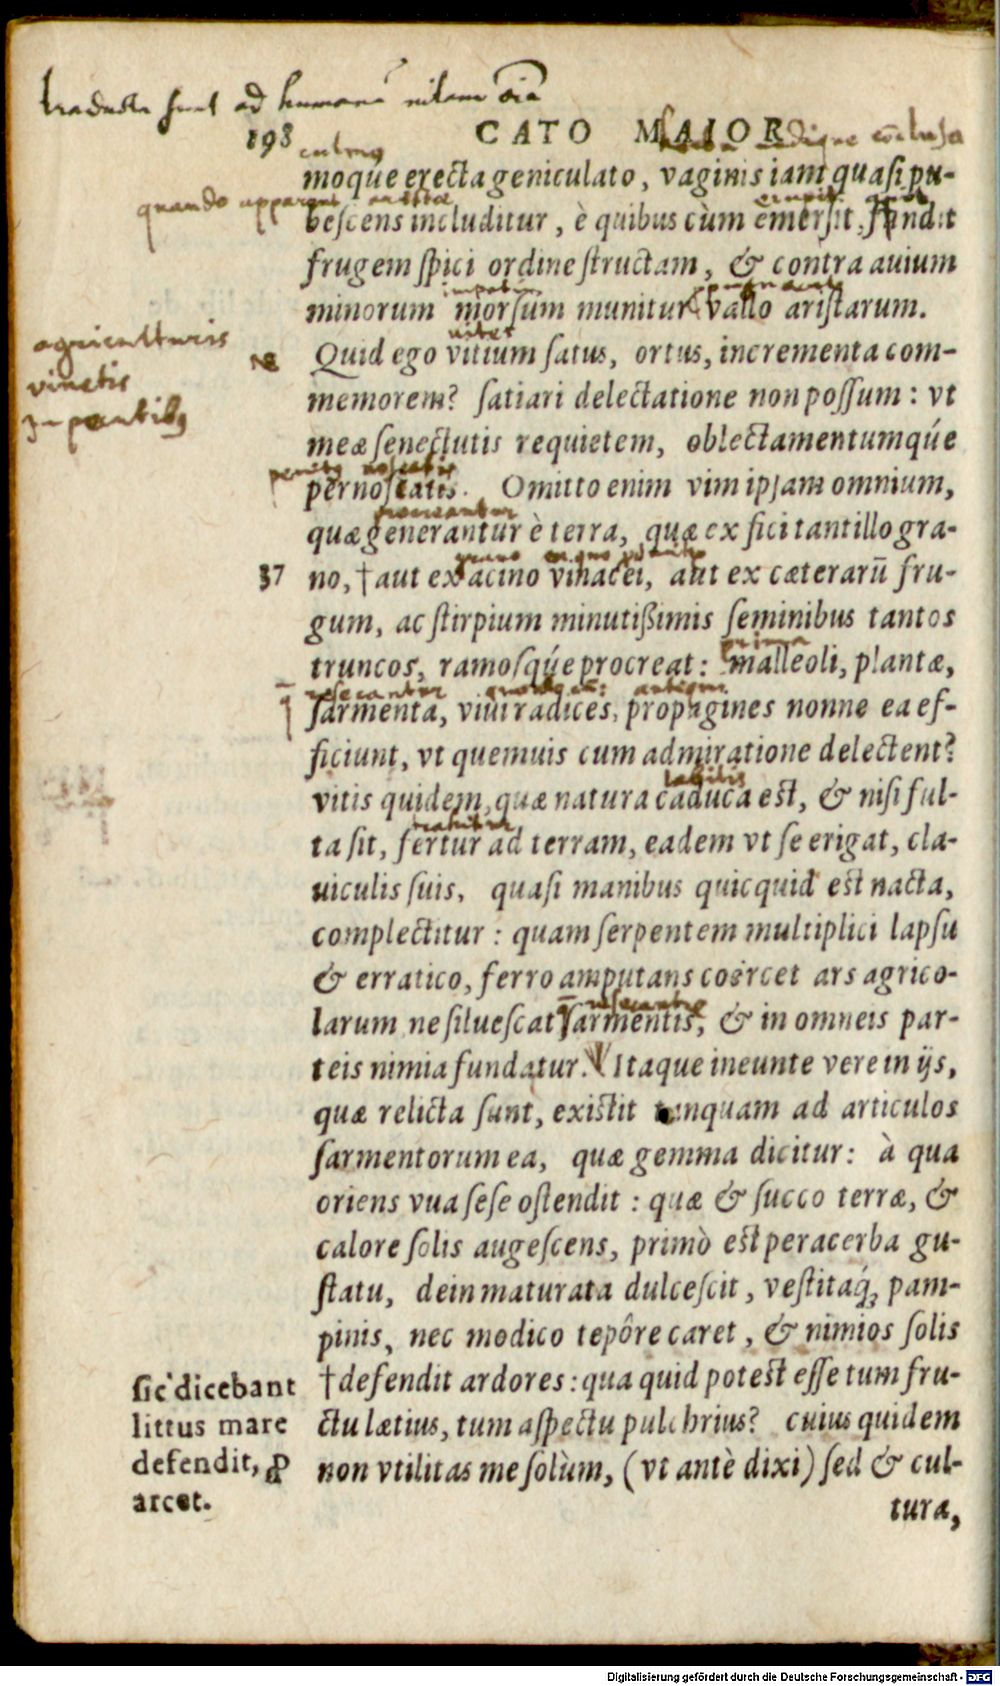 traducta sunt ad humanā vitam oīa
198 CATO MAIOR.
undique cōclusa
culmus
moque erecta geniculato, vaginis iam quasi pu-
quando apparent aristæ
erupit
bescens includitur, è quibus cùm emersit, fundit
frugem spici ordine structam, & contra auium
impetum
minorum morsum munitur vallo aristarum.
agriculturis
vinetis
vites
Quid ego vitium satus, ortus, incrementa com-
memorem? satiari delectatione non possum: vt
meæ senectutis requietem, oblectamentumqúe
penitus noscatis
pernoscatis. Omitto enim vim ipsam omnium,
procreantur
quæ generantur è terra, quæ ex fici tantillo gra-
grano
37 no, † aut ex acino vinacei, aut ex cæterarū fru-
gum, ac stirpium minutißimis seminibus tantos
truncos, ramosqúe procreat: malleoli, plantæ,
resecantur
sarmenta, viui radices, propagines nonne ea ef-
ficiunt, vt quemuis cum admiratione delectent?
labilis
vitis quidem, quæ natura caduca est, & nisi ful-
ta sit, fertur ad terram, eadem vt se erigat, cla-
uiculis suis, quasi manibus quicquid est nacta,
complectitur: quam serpentem multiplici lapsu
& erratico, ferro amputans coërcet ars agrico-
larum ne siluescat sarmentis, & in omneis par-
teis nimia fundatur. Itaque ineunte vere in ijs,
quæ relicta sunt, existit tanquam ad articulos
sarmentorum ea, quæ gemma dicitur: à qua
oriens vua sese ostendit: quæ & succo terræ, &
calore solis augescens, primò est peracerba gu-
statu, dein maturata dulcescit, vestitaq́; pam-
pinis, nec modico tepôre caret, & nimios solis
† defendit ardores: qua quid potest esse tum fru-
ctu lætius, tum aspectu pulchrius? cuius quidem
non vtilitas me solùm, (vt antè dixi) sed & cul-
tura,
sic dicebant
littus mare
defendit, ꝓ
arcet.
Digitalisierung gefördert durch die Deutsche Forschungsgemeinschaft - DFG